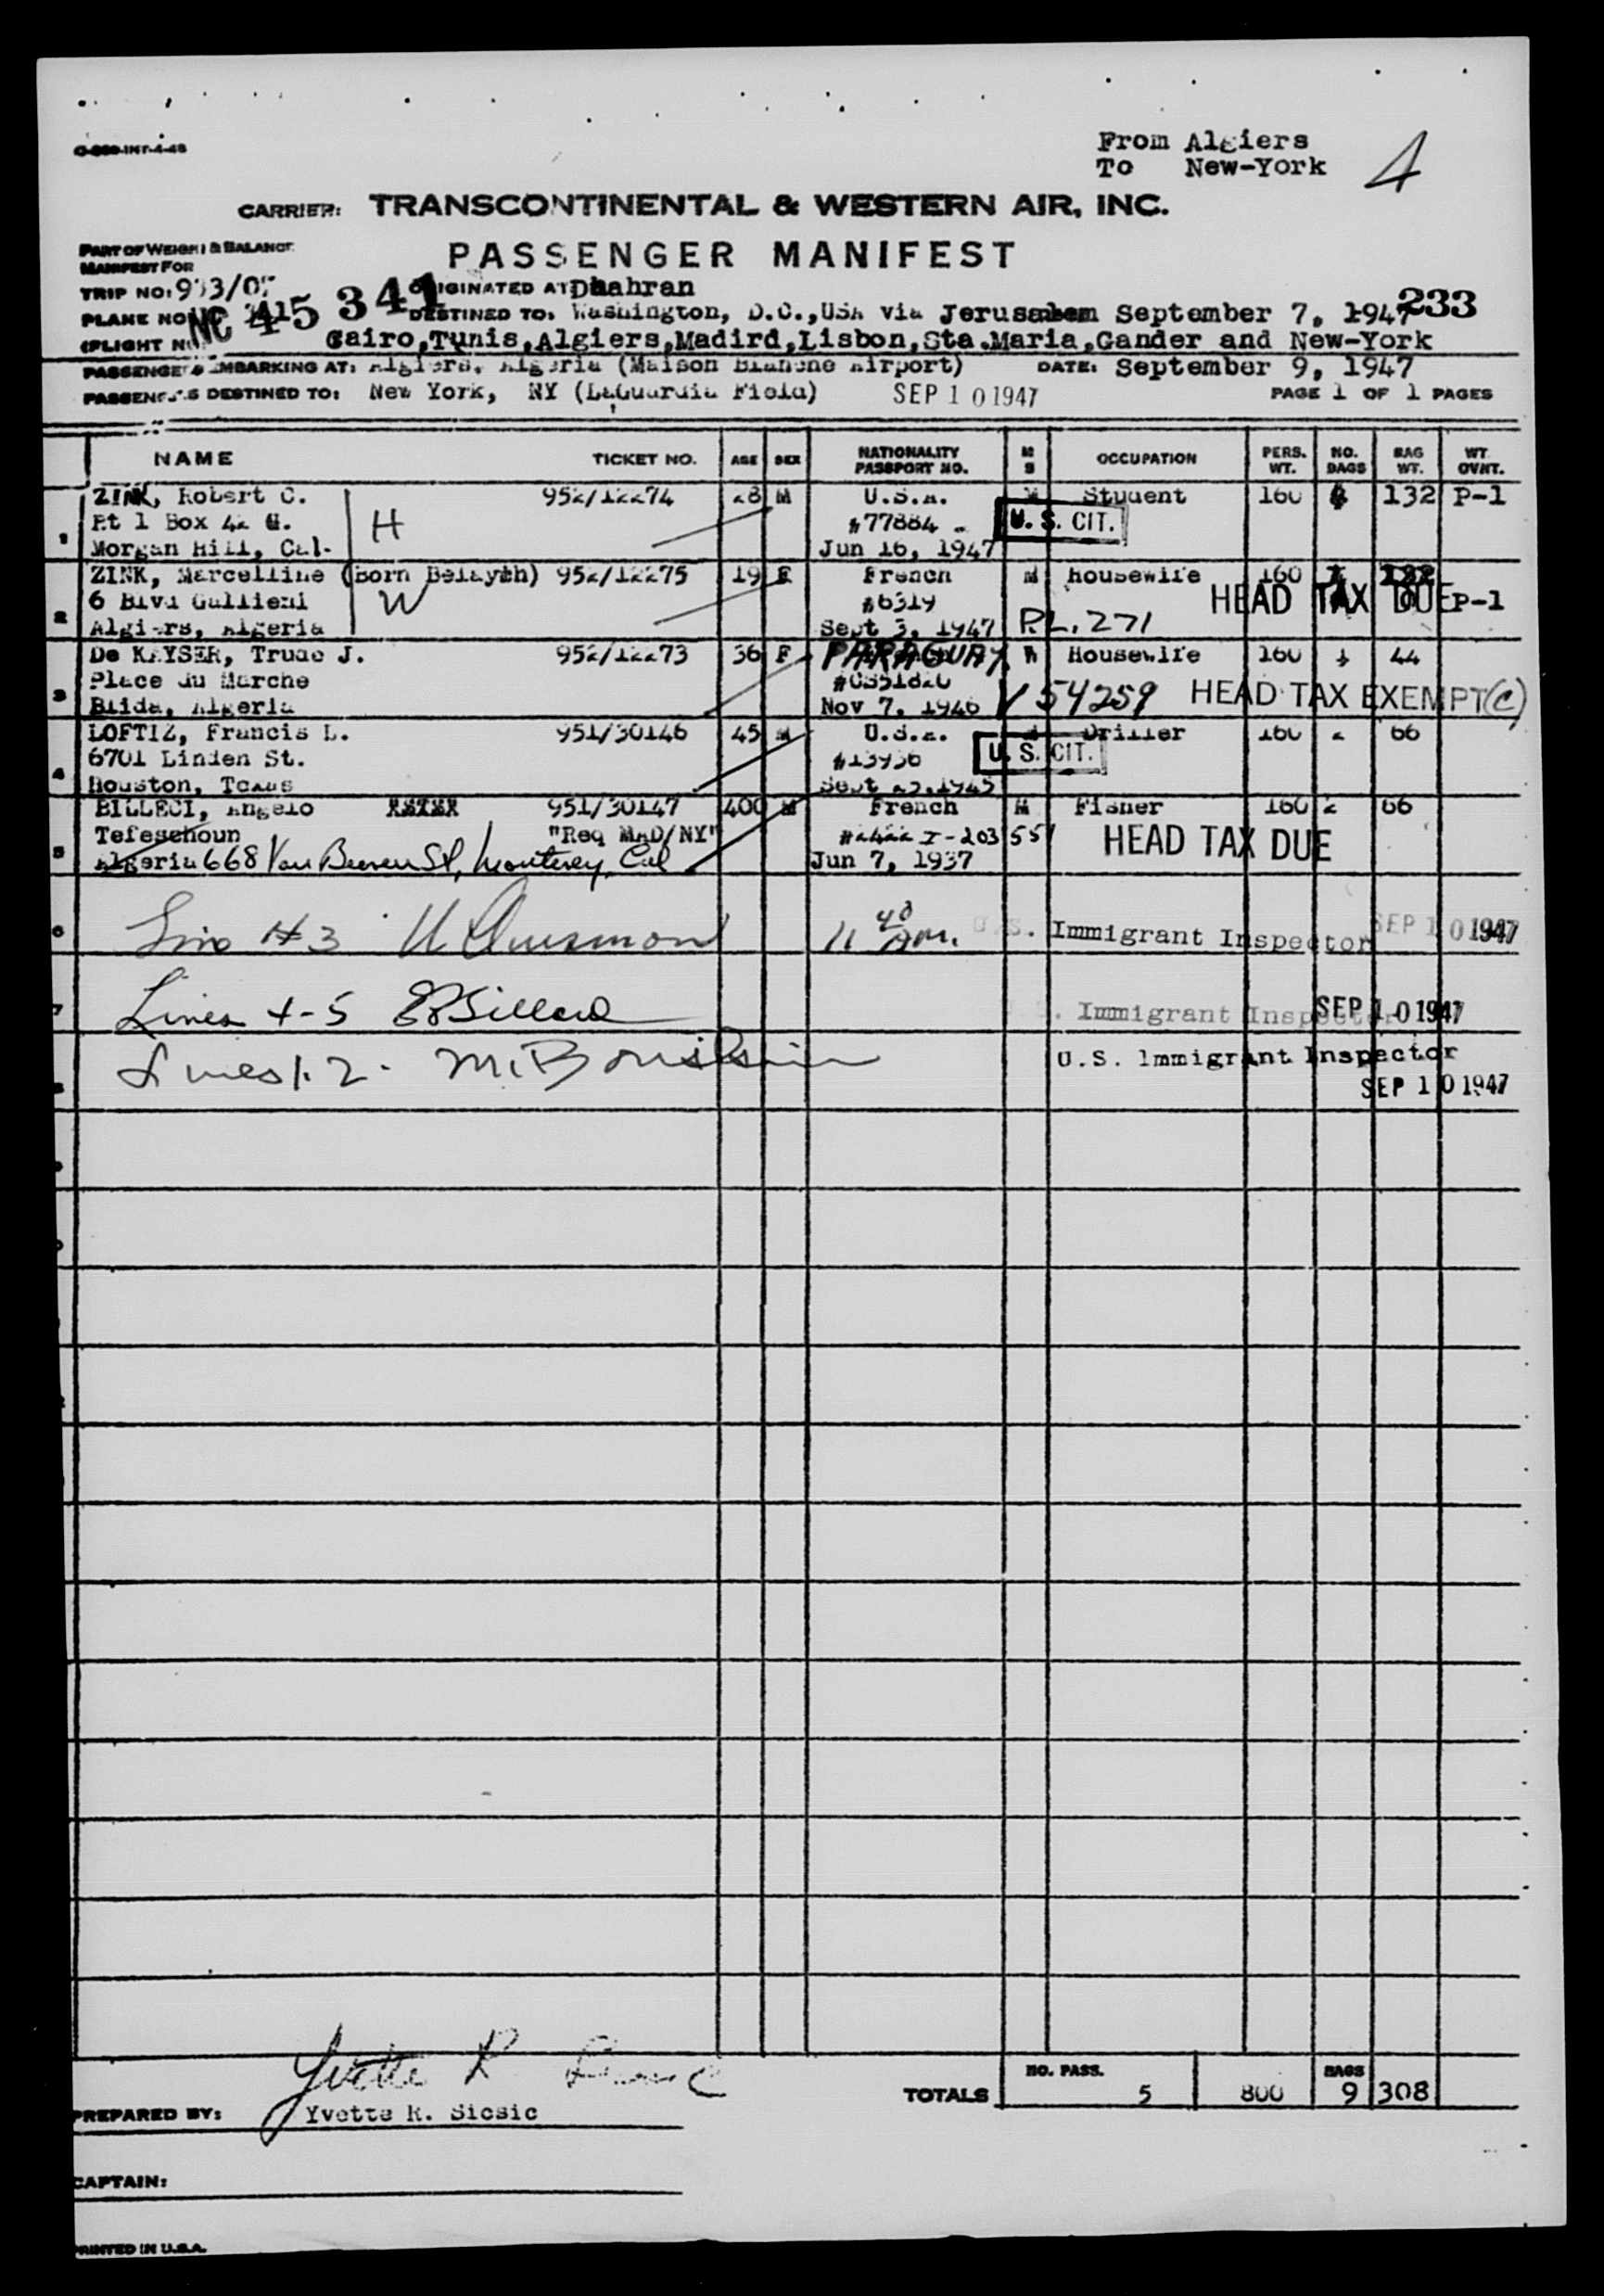 From Algiers
To New-York
4
CARRIER: TRANSCONTINENTAL & WESTERN AIR, INC.
PART OF WEIGHT & BALANCE
MANIFEST FOR
PASSENGER MANIFEST
TRIP NO: 933/07
ORIGINATED AT Dhahran
PLANE NO: NC 45 341
DESTINED TO: Washington, D.C.,USA via Jerusalem September 7, 1947
233
(FLIGHT NO.
Cairo,Tunis,Algiers,Madird,Lisbon,Sta.Maria,Gander and New-York
PASSENGERS EMBARKING AT: Algiers, Algeria (Maison Blanche Airport) DATE: September 9, 1947
PASSENGERS DESTINED TO: New York, NY (LaGuardia Field) SEP 10 1947 PAGE 1 OF 1 PAGES
NAME TICKET NO. AGE SEX NATIONALITY PASSPORT NO. M S OCCUPATION PERS. WT. NO. BAGS BAG WT. WT. OVNT.
1 ZINK, Robert C. 952/12274 28 M U.S.A. M Student 160 132 P-1
Rt 1 Box 42 H #77884 U. S. CIT.
Morgan Hill, Cal- Jun 16, 1947
2 ZINK, Marcelline (Born Belayeh) 952/12275 19 F French M housewife 160
6 Blvd Gallieni W #6319 HEAD TAX DUE P-1
Algiers, Algeria Sept 3, 1947 P.L. 271
3 De KAYSER, Trude J. 952/12273 36 F PARAGUAY Housewife 160 1 44
Place du Marche V 54259 HEAD TAX EXEMPT (C)
Blida, Algeria Nov 7, 1946
4 LOFTIZ, Francis L. 951/30146 45 M U.S.A. Driller 160 2 66
6701 Linden St. #13936 U. S. CIT.
Houston, Texas
5 BILLECI, Angelo 951/30147 400 M French M Fisher 160 2 66
Tefeschoun "Req MAD/NY" I-20355
HEAD TAX DUE
Algeria 668 Van Buren St, Monterey, Cal Jun 7, 1937
6 Line #3 11 40 AM. U.S. Immigrant Inspector SEP 10 1947
7 Lines 4-5 U.S. Immigrant Inspector SEP 10 1947
8 Lines 1.2. U.S. Immigrant Inspector
SEP 10 1947
NO. PASS. BAGS
TOTALS 5 800 9 308
PREPARED BY: Yvette R. Sicsic
CAPTAIN:
PRINTED IN U.S.A.